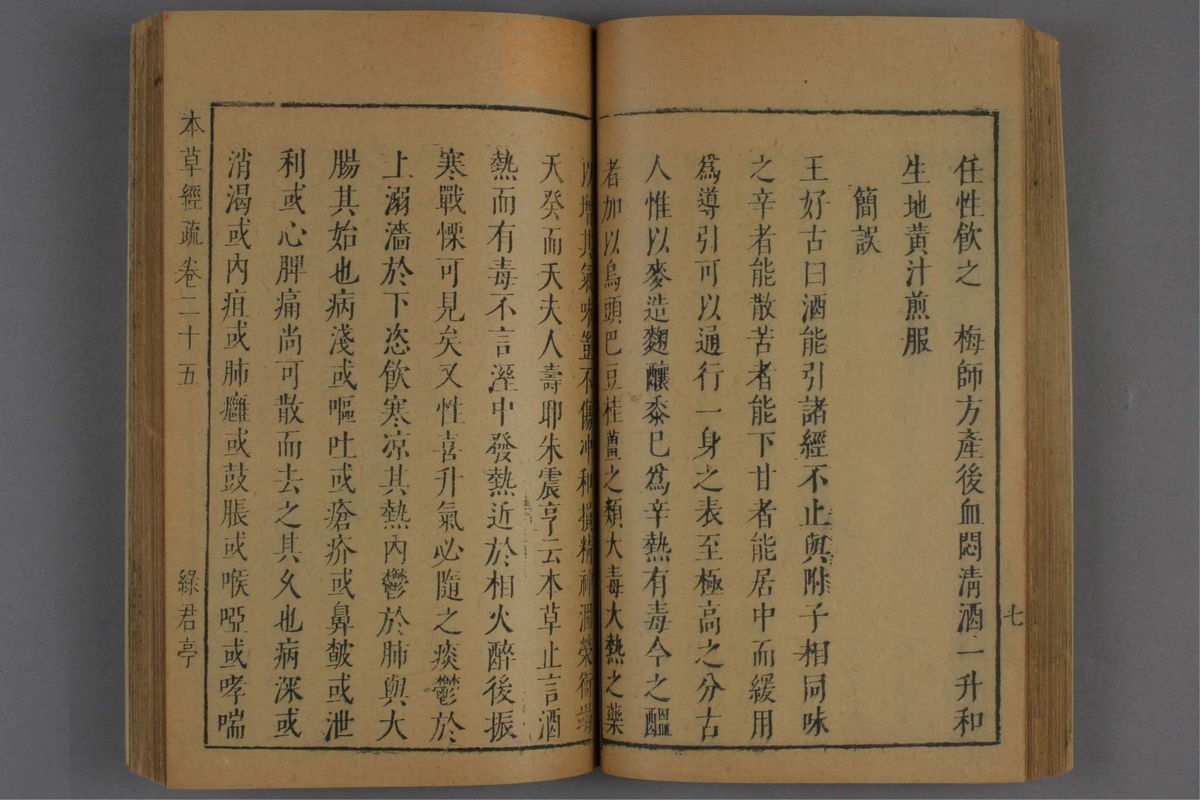 任性飲之　梅師方產後血悶淸酒一升和
生地黃汁煎服
簡誤
王好古曰酒能引諸經不止與附子相同味
之辛者能散苦者能下甘者能居中而緩用
爲導引可以通行一身之表至極高之分古
人惟以麥造麴釀黍已爲辛熱有毒今之醞
者加以烏頭巴豆桂薑之類大毒大熱之藥
以增其氣味豈不傷冲和損精神涸榮衞竭
天癸而夭夫人壽耶朱震亨云本草止言酒
熱而有毒不言溼中發熱近於相火醉後振
寒戰慄可見矣又性喜升氣必隨之痰鬱於
上溺濇於下恣飲寒凉其熱內鬱於肺與大
腸其始也病淺或嘔吐或瘡疥或鼻皶或泄
利或心脾痛尚可散而去之其久也病深或
消渴或內疽或肺癰或鼓脹或喉啞或哮喘
本草經疏 卷二十五
綠君亭
七